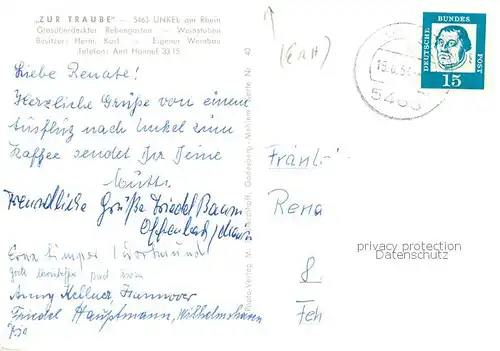 „ZUR TRAUBE" – 5463 UNKEL am Rhein
Glasüberdeckter Rebengarten – Weinstuben
Besitzer: Herm. Korf – Eigener Weinbau
Telefon: Amt Honnef 3315
Liebe Renate!
Herzliche Grüße von einem
Ausflug nach Unkel zum
Kaffee sendet Dir Deine
Mutti.
Freundliche Grüße Friedel Baum
Offenbach/Main
Erna Limper (Dortmund)
Anny Kellner, Hannover
Friedel Hauptmann, Wilhelmshaven
DEUTSCHE
BUNDES
POST
15
5463
Fräul
Rena
privacy protection
Datenschutz
8.
Feh